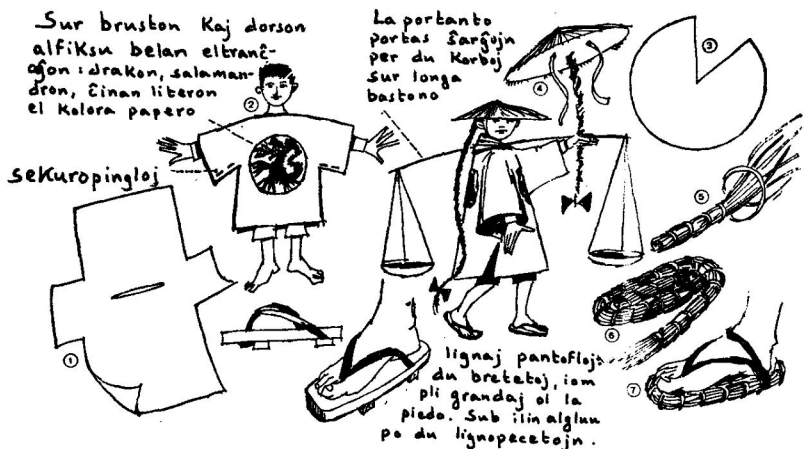 Sur bruston kaj dorson
alfiksu belan eltranĉ-
aĵon: drakon, salaman-
dron, ĉinan literon
el kolora papero
②
sekuropingloj
①
La portanto
portas ŝarĝojn
per du korboj
sur longa
bastono
④
③
⑤
⑥
⑦
lignaj pantofloj:
du bretetoj, iom
pli grandaj ol la
piedo. Sub ilin algluu
po du lignopecetojn.